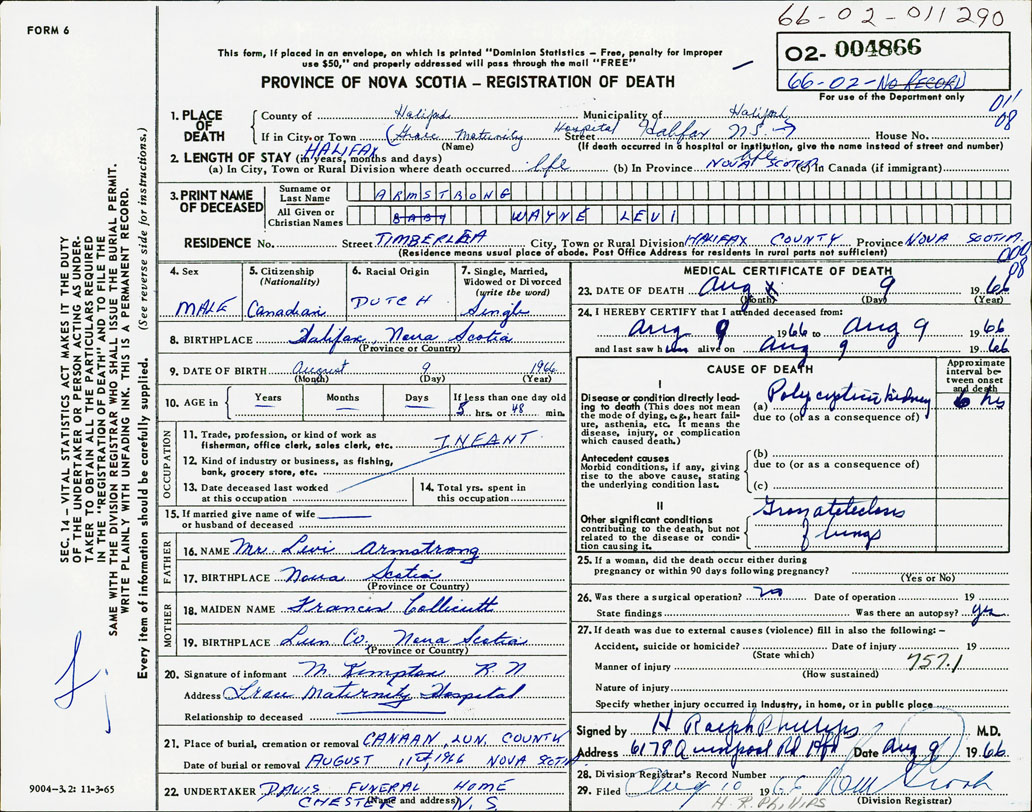 66-02-011290
FORM 6
This form, if placed in an envelope, on which is printed "Dominion Statistics – Free, penalty for improper
use $50," and properly addressed will pass through the mail "FREE"
02- 004866
66-02-NO RECORD
For use of the Department only
PROVINCE OF NOVA SCOTIA – REGISTRATION OF DEATH
011
08
1. PLACE OF DEATH
County of Halifax Municipality of Halifax
If in City, or Town (Grace Maternity Hospital Street Halifax N.S. House No.
HALIFAX (Name) (If death occurred in a hospital or institution, give the name instead of street and number)
2. LENGTH OF STAY (in years, months and days)
(a) In City, Town or Rural Division where death occurred life (b) In Province life NOVA SCOTIA (c) In Canada (if immigrant)
3. PRINT NAME OF DECEASED
Surname or Last Name ARMSTRONG
All Given or Christian Names BABY WAYNE LEVI
RESIDENCE No. Street TIMBERLEA City, Town or Rural Division HALIFAX COUNTY Province NOVA SCOTIA
(Residence means usual place of abode. Post Office Address for residents in rural parts not sufficient)
000
08
4. Sex MALE
5. Citizenship (Nationality) Canadian
6. Racial Origin DUTCH
7. Single, Married, Widowed or Divorced (write the word) Single
8. BIRTHPLACE Halifax, Nova Scotia
(Province or Country)
9. DATE OF BIRTH August 9 1966
(Month) (Day) (Year)
10. AGE in Years Months Days If less than one day old
5 hrs. or 48 min.
OCCUPATION
11. Trade, profession, or kind of work as
fisherman, office clerk, sales clerk, etc. INFANT
12. Kind of industry or business, as fishing,
bank, grocery store, etc.
13. Date deceased last worked
at this occupation
14. Total yrs. spent in
this occupation
15. If married give name of wife
or husband of deceased
FATHER
16. NAME Mr. Levi Armstrong
17. BIRTHPLACE Nova Scotia
(Province or Country)
MOTHER
18. MAIDEN NAME Frances Collicutt
19. BIRTHPLACE Lun Co. Nova Scotia
(Province or Country)
20. Signature of informant M. Kempton R.N
Address Grace Maternity Hospital
Relationship to deceased
21. Place of burial, cremation or removal CANAAN, LUN. COUNTY
Date of burial or removal AUGUST 11th, 1966 NOVA SCOTIA
22. UNDERTAKER DAVIS FUNERAL HOME
(Name and address) CHESTER N.S
MEDICAL CERTIFICATE OF DEATH
23. DATE OF DEATH Aug 9 1966
(Month) (Day) (Year)
24. I HEREBY CERTIFY that I attended deceased from:
Aug 9 1966 to Aug 9 1966
and last saw him alive on Aug 9 1966
CAUSE OF DEATH
Approximate interval between onset and death
I
Disease or condition directly leading to death (This does not
the mode of dying, e.g., heart failure, asthenia, etc. It means the
disease, injury, or complication
which caused death.)
(a) Polycystic kidney 6 hrs
due to (or as a consequence of)
Antecedent causes
Morbid conditions, if any, giving
rise to the above cause, stating
the underlying condition last.
(b)
due to (or as a consequence of)
(c)
II
Other significant conditions
contributing to the death, but not
related to the disease or condition causing it.
atelectasis
of lungs
25. If a woman, did the death occur either during
pregnancy or within 90 days following pregnancy?
(Yes or No)
26. Was there a surgical operation? no Date of operation 19
State findings Was there an autopsy? yes
27. If death was due to external causes (violence) fill in also the following: –
Accident, suicide or homicide? Date of injury 19
(State which)
757.1
Manner of injury
(How sustained)
Nature of injury
Specify whether injury occurred in industry, in home, or in public place
Signed by H Ralph Phillips M.D.
Address 6178A Quinpool Rd Hfx Date Aug 9 1966
28. Division Registrar's Record Number
29. Filed Aug 10 1966
(Division Registrar)
H R Phillips
SEC. 14 – VITAL STATISTICS ACT MAKES IT THE DUTY
OF THE UNDERTAKER OR PERSON ACTING AS UNDERTAKER TO OBTAIN ALL THE PARTICULARS REQUIRED
IN THE "REGISTRATION OF DEATH" AND TO FILE THE
SAME WITH THE DIVISION REGISTRAR WHO SHALL ISSUE THE BURIAL PERMIT.
WRITE PLAINLY WITH UNFADING INK. THIS IS A PERMANENT RECORD.
Every item of information should be carefully supplied. (See reverse side for instructions.)
9004-3.2: 11-3-65